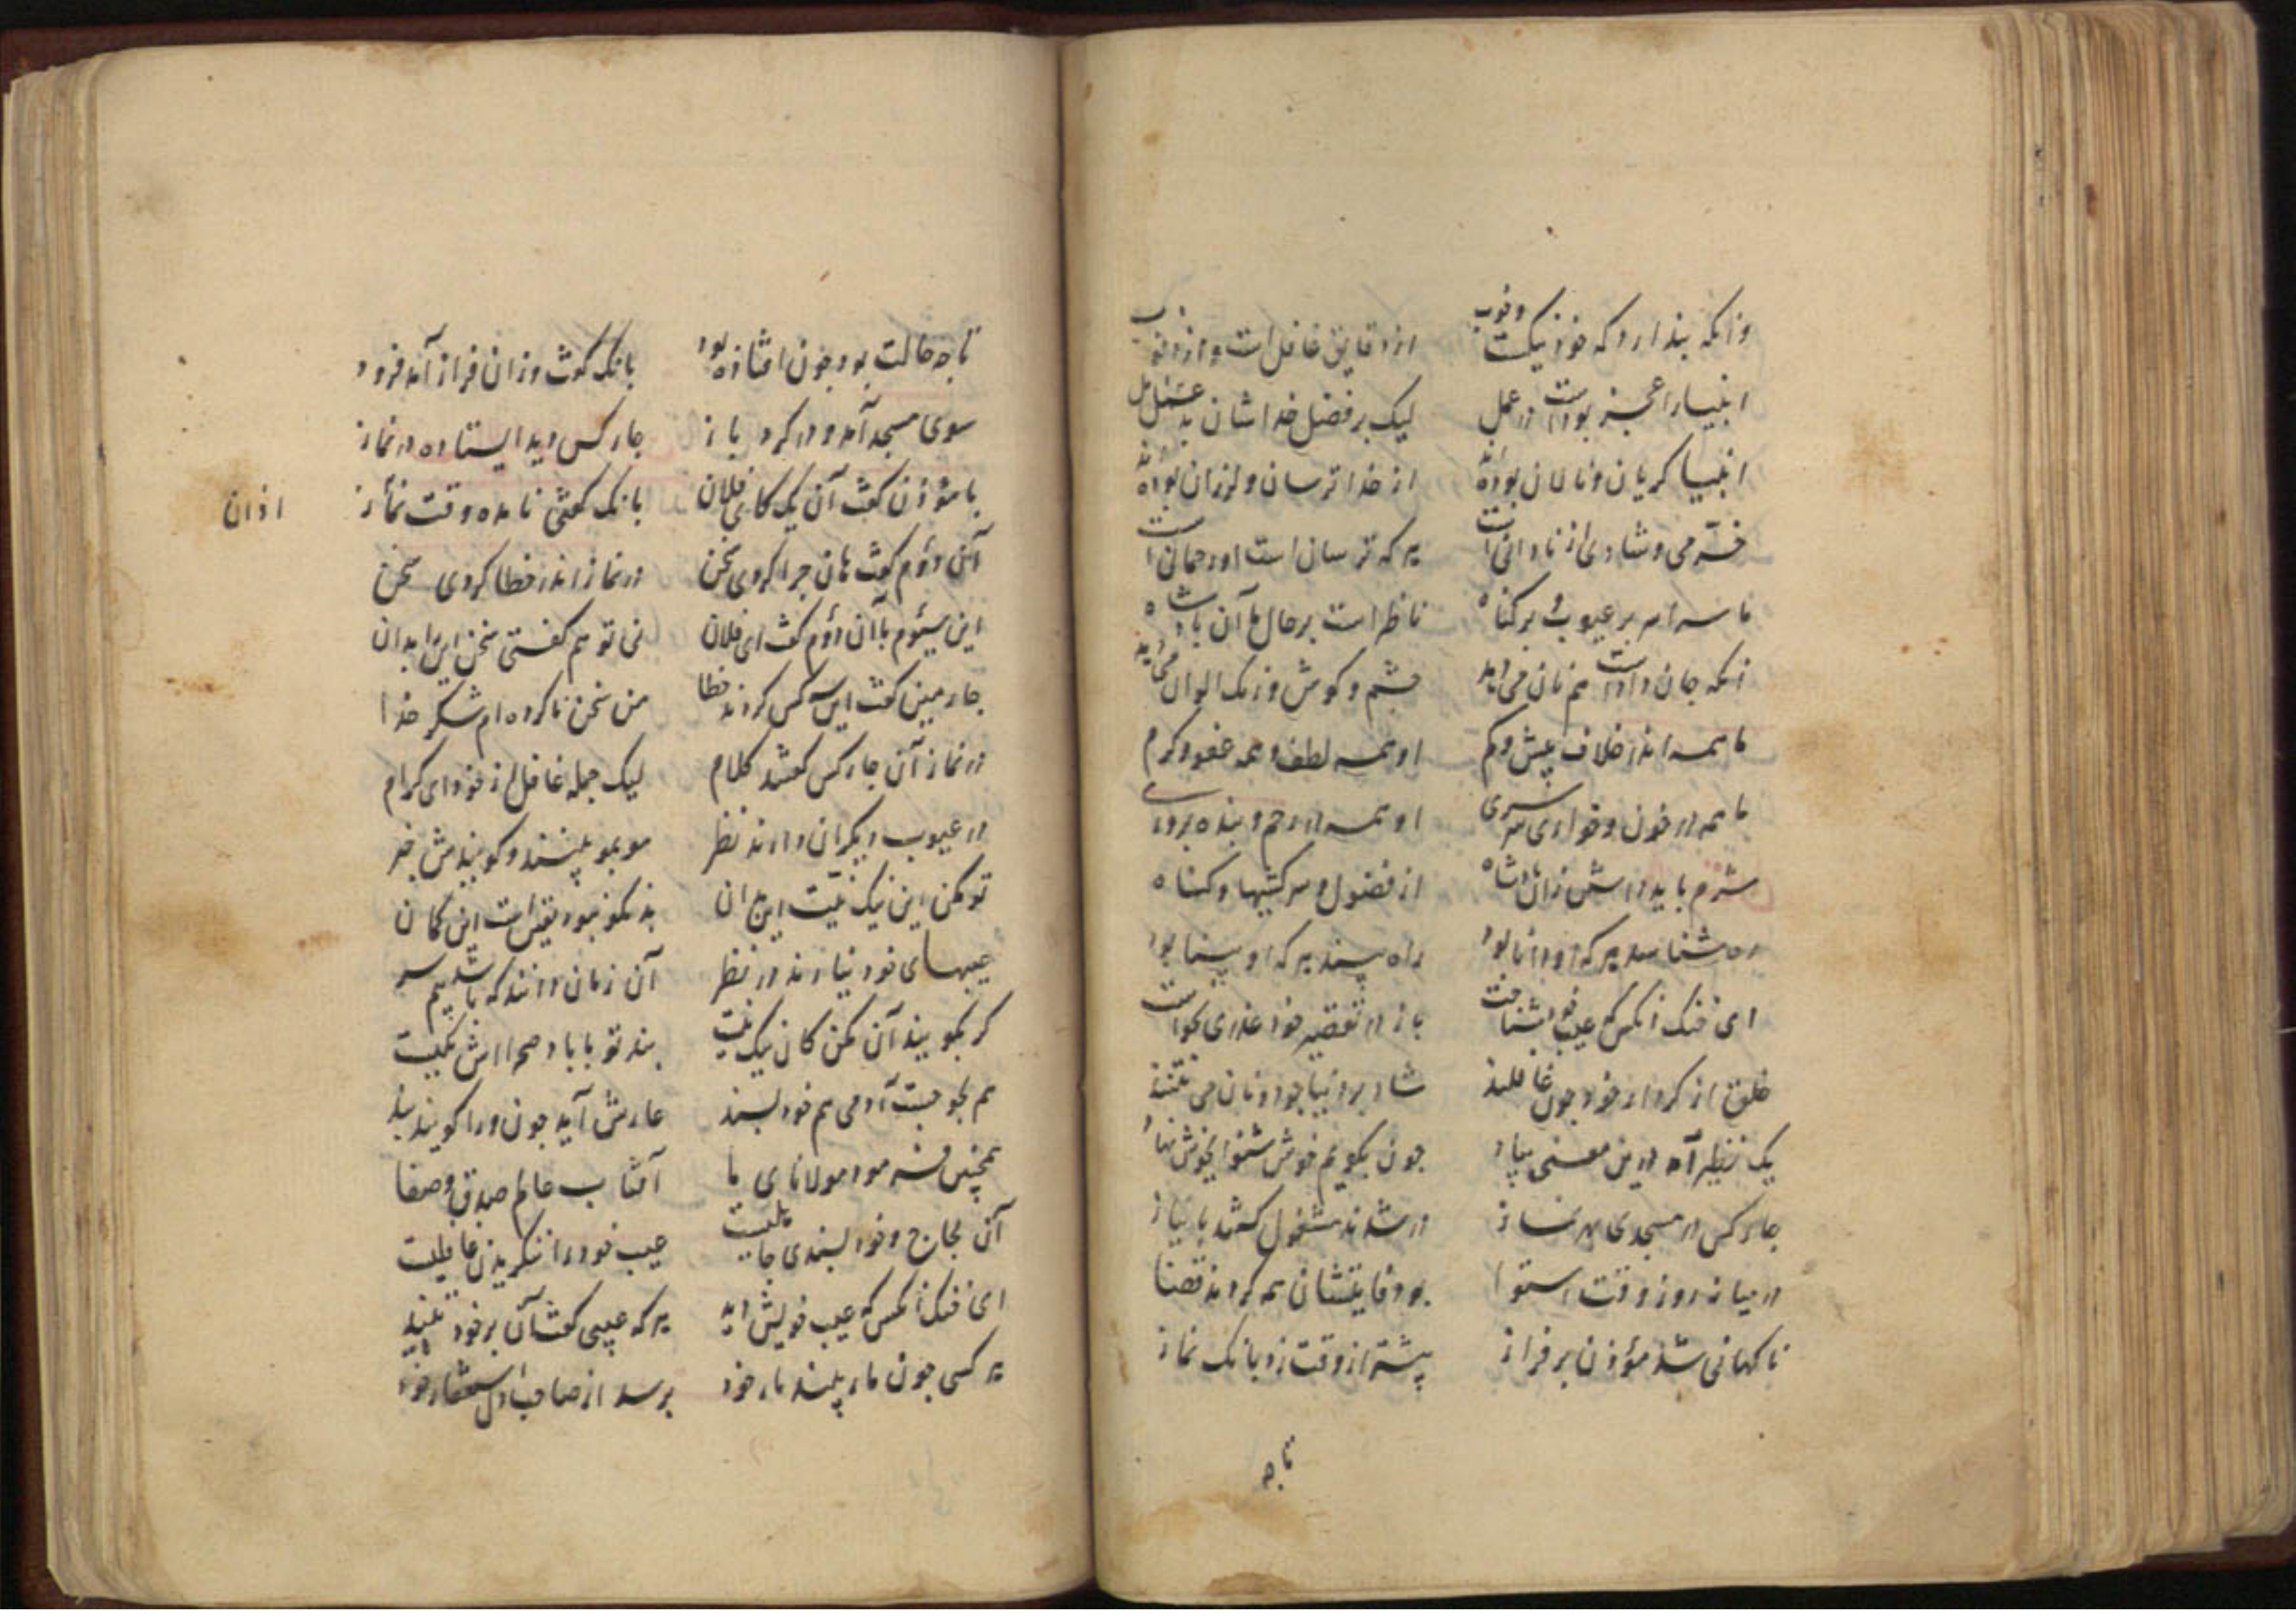 وانکه پندارد که خود نیکست و خوب از دقایق غافل است و از ذنوب
انبیا را عجز بودست در عمل لیک بر فضل خداشان بد
انبیا کریان و نالان بوده‌اند از خدا ترسان و لرزان بوده‌اند
خرمی و شادی از نادانی است هر که ترسان است او رحمانی است
ما سراسر بر عیوب و بر کناه ناظر است بر حال ما آن پادشاه
آنکه جان دادست هم نان می‌دهد چشم و کوش و رنک الوان می‌دهد
ما همه اندر خلاف بیش و کم او همه لطف و همه عفو و کرم
ما همه در خون و خواری سرسری او همه در رحم و بنده پروری
شرم باید داشتن زان پادشاه از فضول و سرکشیها و کناه
ره شناسد هر که او دانا بود راه بیند هر که او بینا بود
ای خنک آنکس که عیب خود شناخت باز در تقصیر خود عذری
خلق از کردار خود چون غافلند شاد بر دنیا چو دونان می‌تنند
یک نظیر آمد درین معنی بیاد چون بکویم خوش شنو ای خوش نهاد
چار کس در مسجدی بهر نماز در شدند مشغول کشتند با نیاز
در میانه روز وقت استوا بود فایتشان همه کردند قضا
ناکهانی شد مؤذن بر فراز پیشتر از وقت زد بانک نماز
تا چه
تا چه حالت بود چون افتاده بود بانک کفت و زان فراز آمد فرود
سوی مسجد آمد و در کرد باز چار کس دید ایستاده در نماز
با مؤذن کفت آن یک کای فلان بانک کفتی نامده وقت نماز
اذان
آن دوم کفت هان چرا کردی سخن در نماز اندر خطا کردی سخن
این سیوم با آن دوم کفت ای فلان نی تو هم کفتی سخن این را بدان
چارمین کفت این سه کس کردند خطا من سخن ناکرده‌ام شکر خدا
در نماز آن چار کس کفتند کلام لیک جمله غافل از خود ای کرام
در عیوب دیکران دارند نظر مو بمو بینند و کویندش خبر
تو مکن این نیک نیست این بدان بد نکو نبود یقین است این کمان
عیبهای خود نیارند در نظر آن زمان دانند که باشد بیم سر
کر بکویند آن مکن کان نیک نیست پند تو با باد صحرااش یکیست
هم لجوجست آدمی هم خود پسند عارش آید چون ورا کویند پند
همچنین فرمود مولانای ما آفتاب عالم صدق و صفا
آن لجاج و خود پسندی جاهلیست عیب خود را ننکریدن غافلیست
ای خنک آنکس که عیب خویش دید هر که عیبی کفت آن بر خود خرید
هر کسی چون مار بیند یار خود پرسد از صاحب دل خود